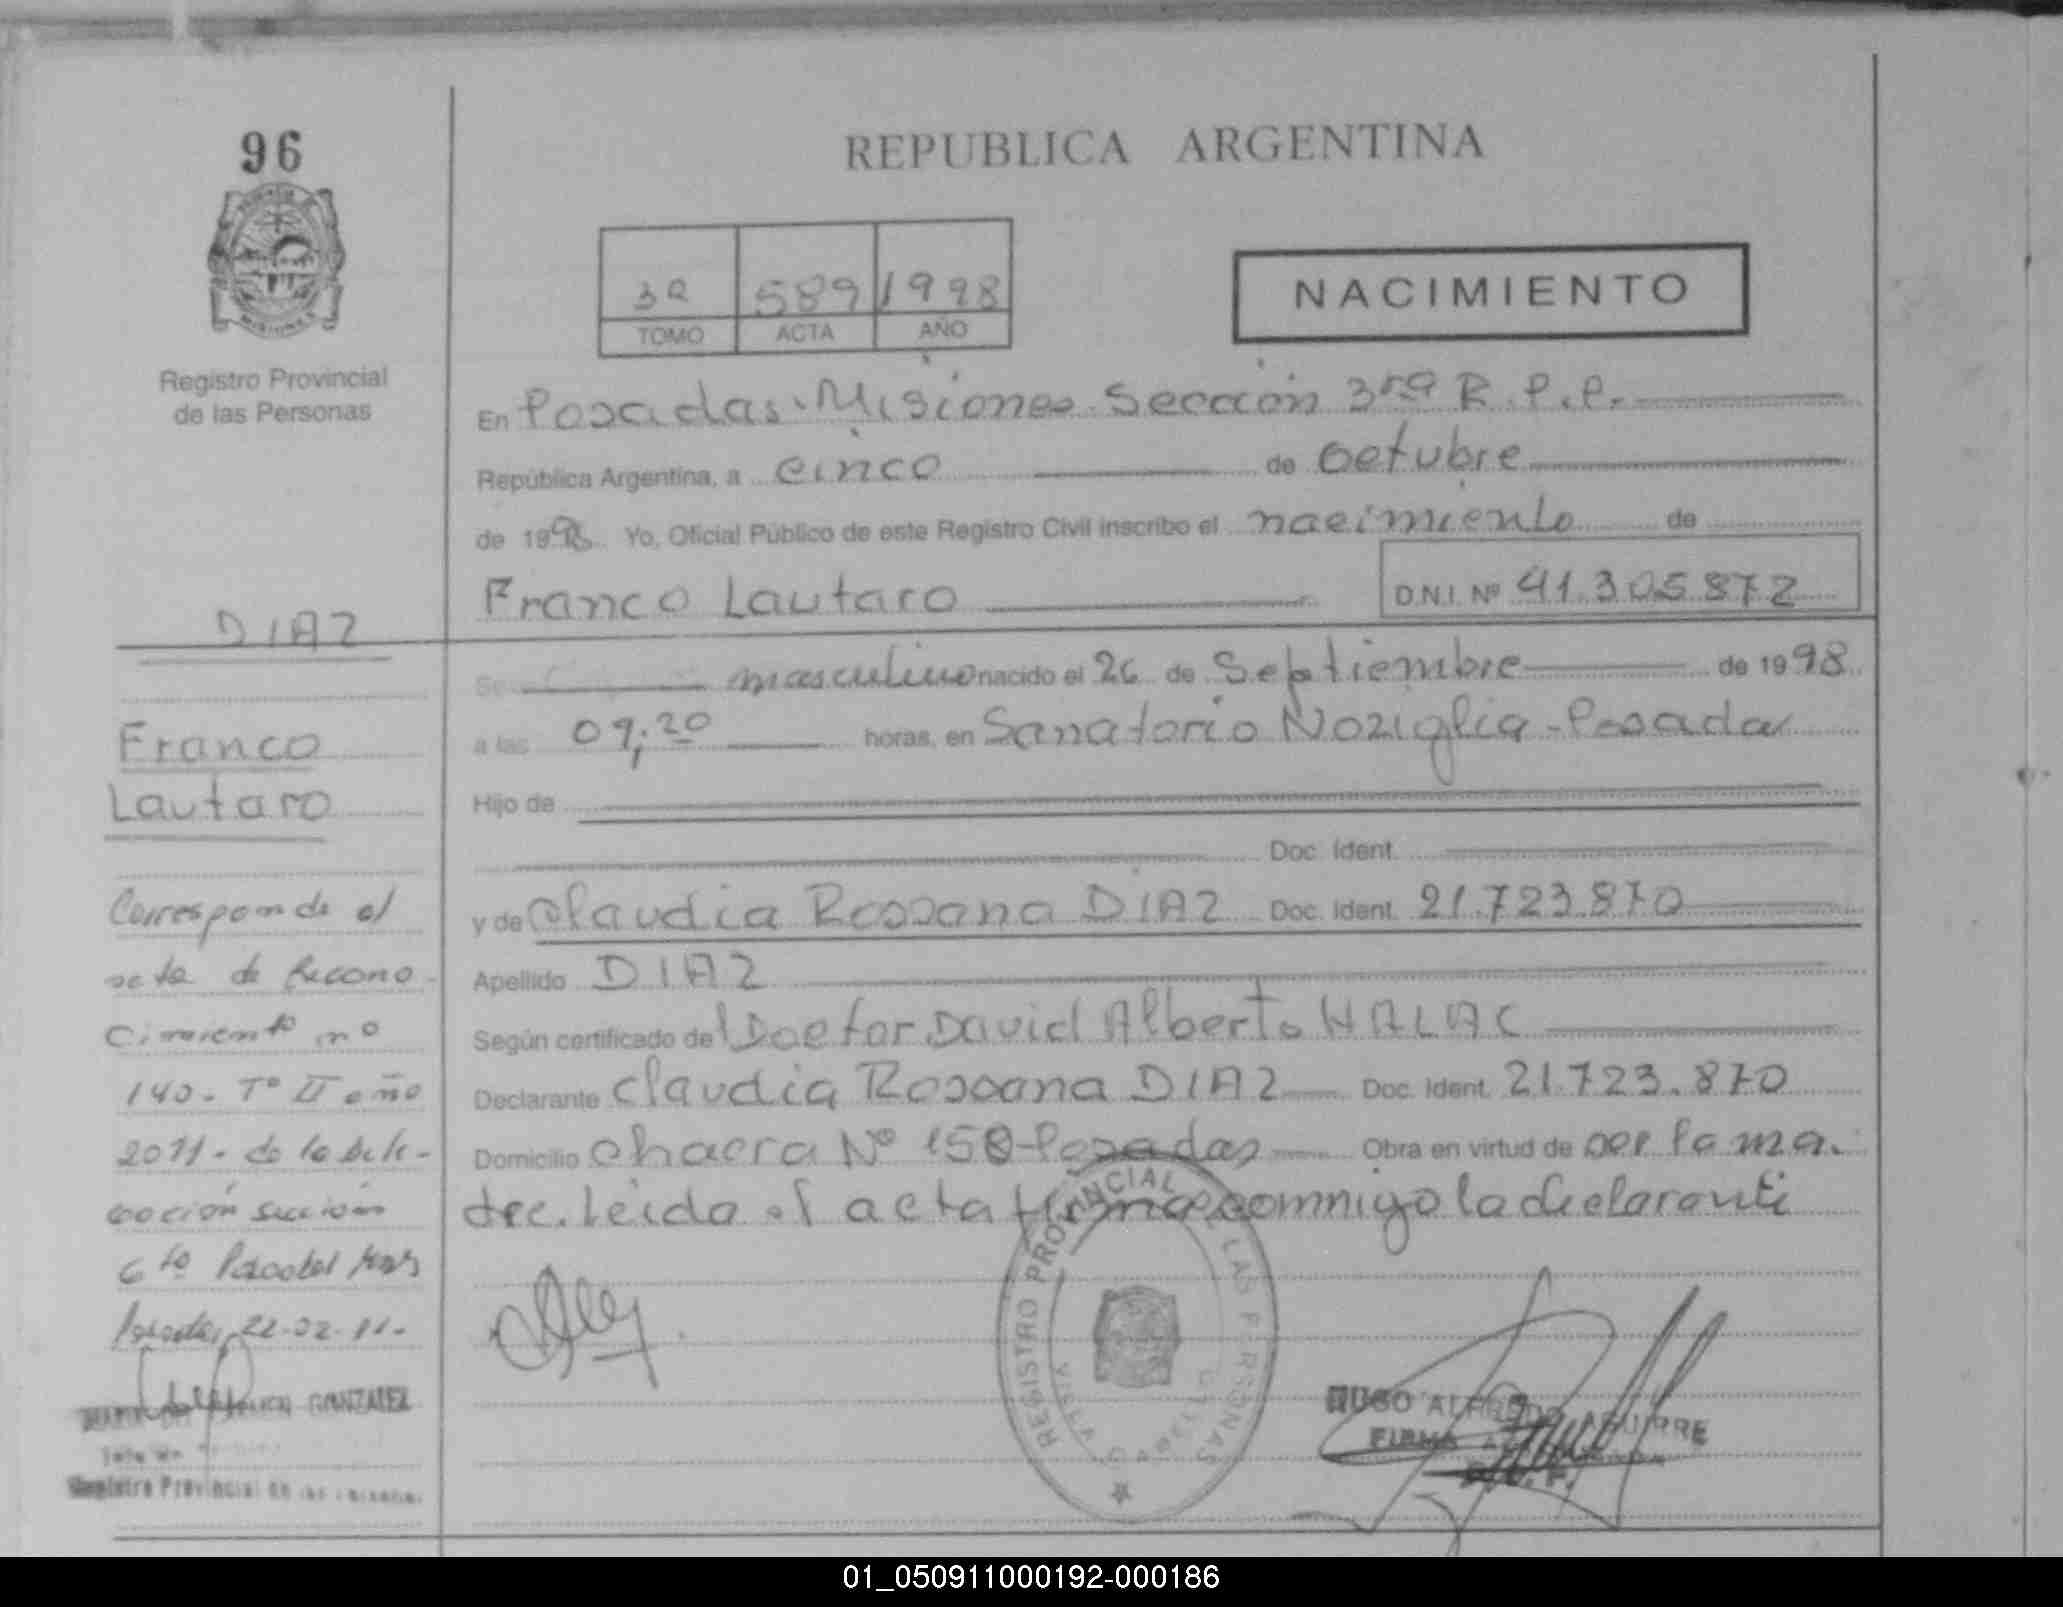 96
REPUBLICA ARGENTINA
3º 589 1998
TOMO ACTA AÑO
NACIMIENTO
Registro Provincial
de las Personas
En Posadas Misiones Sección 3ra R.P.P.
República Argentina, a cinco de octubre
de 1998 Yo, Oficial Público de este Registro Civil inscribo el nacimiento de
Franco Lautaro D.N.I. Nº 41.305.872
masculino nacido el 26 de Septiembre de 1998
a las 09;20 horas, en Sanatorio Noziglia - Posadas
Hijo de
Doc. Ident.
y de Claudia Rossana DIAZ Doc. Ident. 21.723.870
Apellido DIAZ
Según certificado del Doctor David Alberto HALAC
Declarante Claudia Rossana DIAZ Doc. Ident. 21.723.870
Domicilio chacra Nº 158-Posadas Obra en virtud de ser la ma.
dre. Leida el acta firma conmigo la declarante
DIAZ
Franco
Lautaro
Corresponde al
acta de Recono-
cimiento nº
140. Tº II año
2011 - de la dele-
sección
6ta
Posadas, 22-02-11.
GONZALEZ
Registro Provincial de las Personas
REGISTRO PROVINCIAL DE LAS PERSONAS
HUGO ALFREDO AGUIRRE
FIRMA AUTORIZADA
R. P. P.
01_050911000192-000186